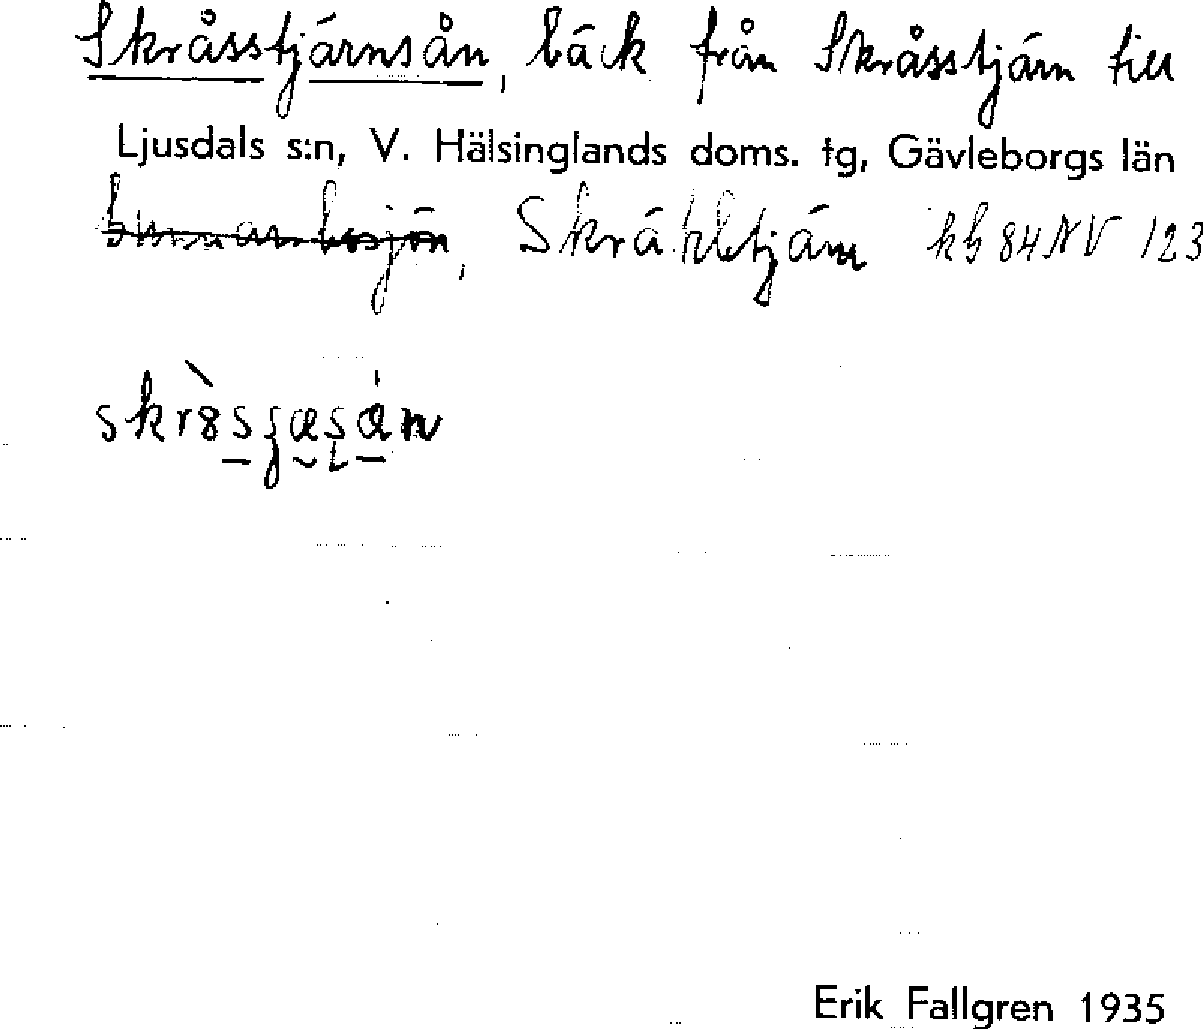 Skråsstjärnsån, bäck från Skråsstjärn till
Ljusdals s:n, V. Hälsinglands doms. tg, Gävleborgs län
Skråkltjärn kb 84 NV 123
Erik Fallgren 1935